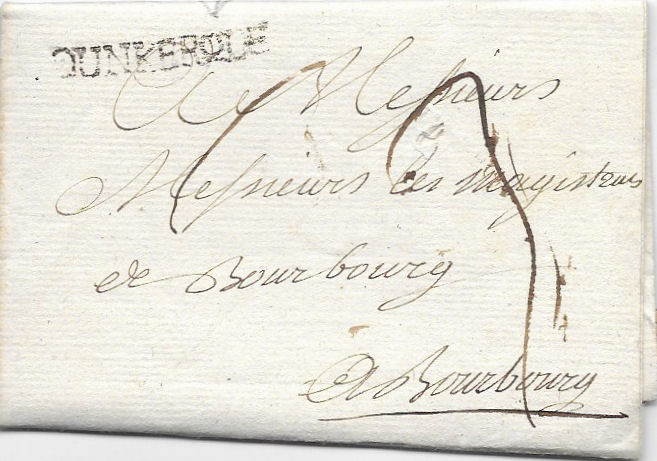 DUNKERQUE
A Messieurs
Messieurs les magistrats
de Bourbourg
A Bourbourg